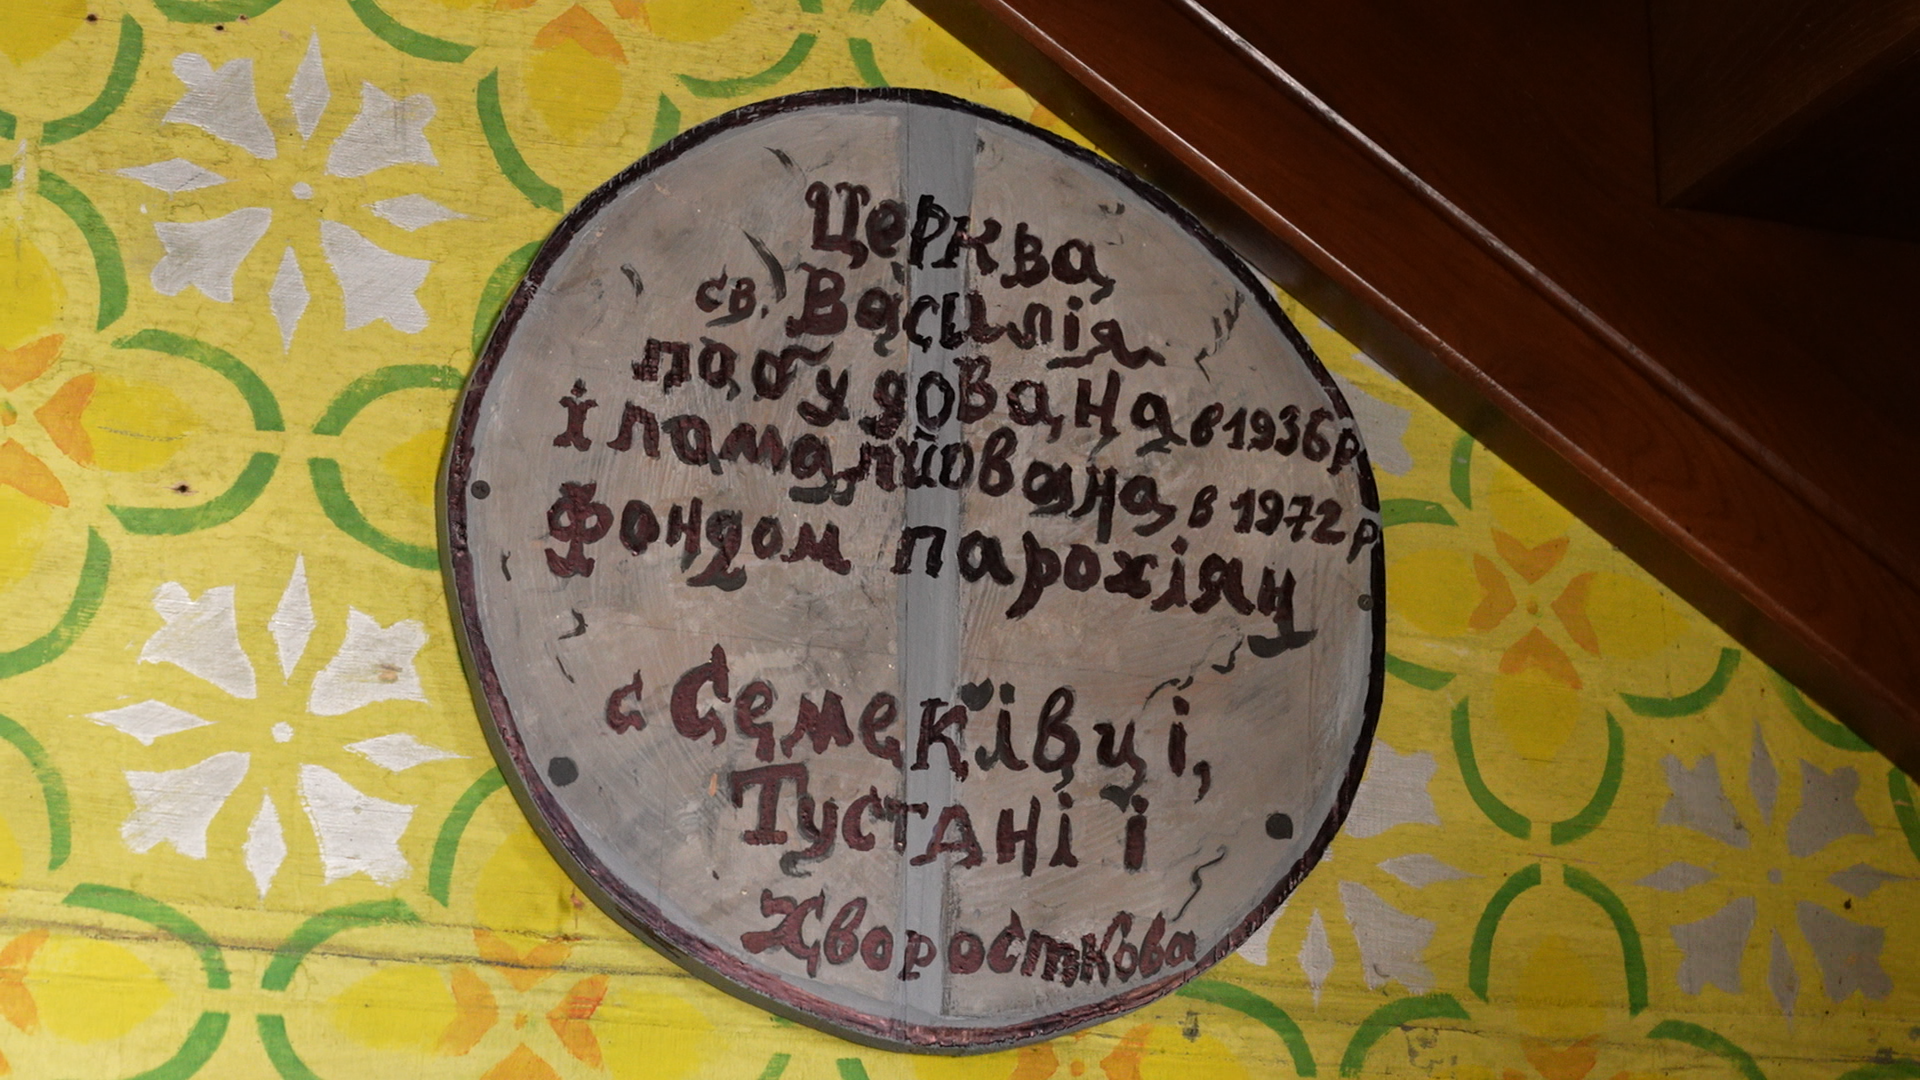 Церква
св. Василія
побудована в 1936 р
і памалйована в 1972 р
Фондом парохіян
с Семеківці,
Тустані і
Хворосткова